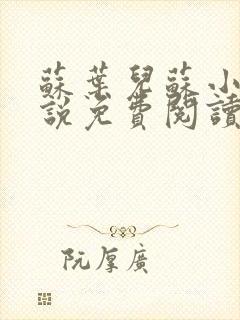 蘇葉兒蘇小
說免費閱讀
阮厚廣